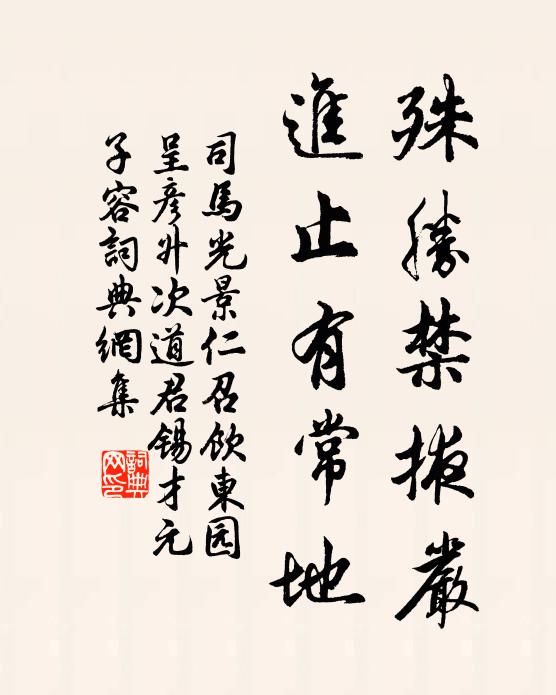 殊勝禁掖嚴
進止有常地
司馬光景仁召飲東园
呈彦升次道君錫才元
子容詞典網集
詞典网印